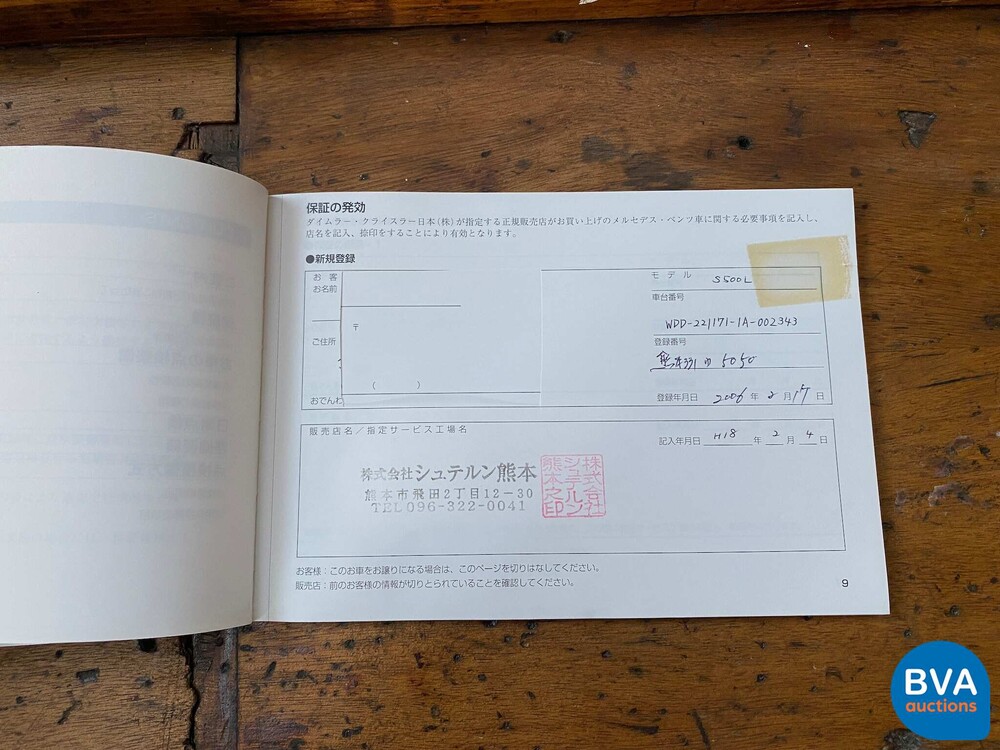 保証の発効
ダイムラー・クライスラー日本(株)が指定する正規販売店がお買い上げのメルセデス・ベンツ車に関する必要事項を記入し、
店名を記入、捺印をすることにより有効となります。
●新規登録
お客
お名前
〒
ご住所
( )
おでんわ
モデル S500L
車台番号
WDD-221171-1A-002343
登録番号
5050
登録年月日 2006 年 2 月 17 日
販売店名/指定サービス工場名
記入年月日 H18 年 2 月 4 日
株式会社シュテルン熊本
熊本市飛田2丁目12-30
TEL096-322-0041
株式会社
シュテルン
熊本之印
お客様:このお車をお譲りになる場合は、このページを切りはなしてください。
販売店:前のお客様の情報が切りとられていることを確認してください。
9
BVA
auctions